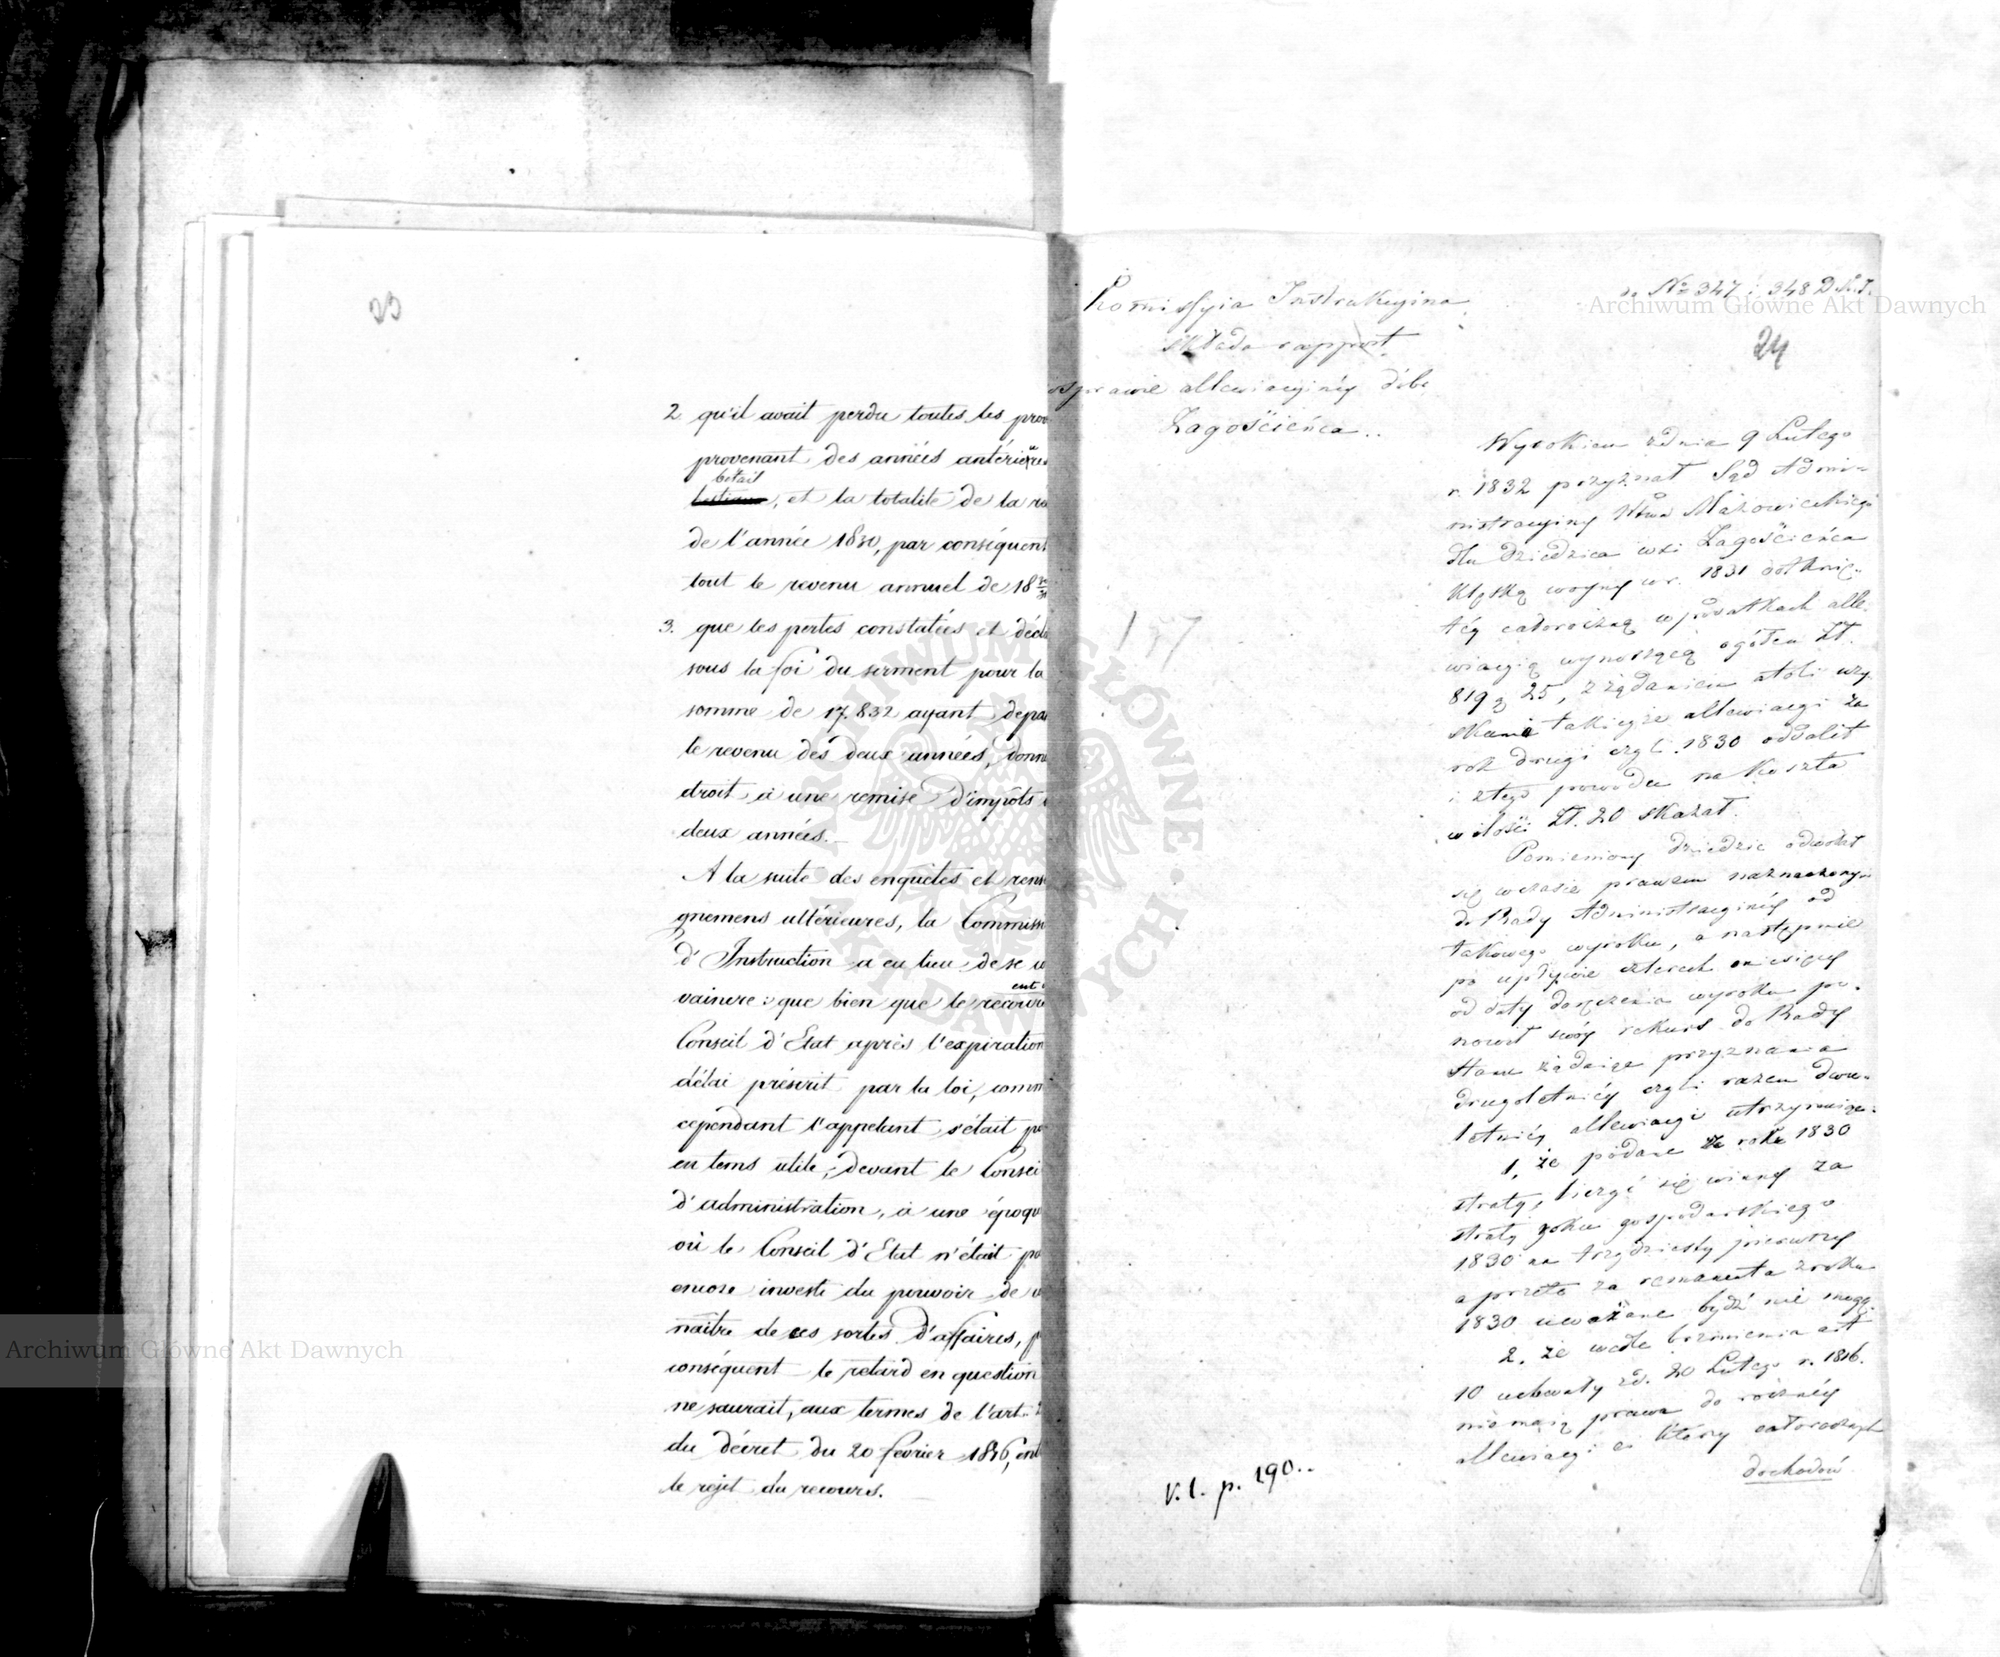 23
2. qu'il avait perdu toutes les prov
provenant des années antérieures
bétail
bestiaux, et la totalité de la ré
de l'année 1830, par conséquent
tout le revenu annuel de 18 30/31
3. que les pertes constatées et décla
sous la foi du serment pour la
somme de 17.832 ayant dépa
le revenu des deux années, donn
droit à une remise d'impôts
deux années. —
A la suite des enquêtes et rens
gnemens ultérieures, la Commiss
d'Instruction a eu lieu de se
vaincre: que bien que le recours
Conseil d'Etat après l'expiration
délai préscrit par la loi, comm
cependant l'appelant s'était
en tems utile, devant le Consei
d'administration, à une époqu
où le Conseil d'Etat n'était pa
encore investi du pouvoir de
naître de ces sortes d'affaires,
conséquent le retard en question
ne saurait, aux termes de l'art.
du décret du 20 février 1816,
le rejet du recours. —
Kommissyia Instrukcyina
składa rapport
w sprawie allewiacyinéy dóbr
Zagościeńca..
do No 347 i 348 D.K.I.
24
Wyrokiem zdnia 9 Lutego
r. 1832 przyznał Sąd Admi=
nistracyiny Wtwa Mazowieckiego
dla dziedzica wsi Zagościeńca
klęską woyny w r. 1831 dotknię=
téy całoroczną w podatkach alle=
wiacyią wynoszącą ogółem Zł.
819 g 25, z żądaniem atoli uzy
skania takieyże allewiacyi za
rok drugi czyli 1830 oddalił
i ztego powodu na koszta
w ilości Zł. 20 skazał.
Pomieniony dziedzic odwołał
się w czasie prawem naznaczonym
do Rady Administracyinéy od
takowego wyroku, a następnie
po upływie czterech miesięcy
od daty doręczenia wyroku po=
nowił swóy rekurs do Rady
Stanu żądaiąc przyznania
drugoletniéy czyli razem dwu=
letniéy allewiacyi utrzymuiąc:
1, że podane za rok 1830
straty, liczyć się winny za
straty roku gospodarskiego
1830 na trzydziesty pierwszy
a przeto za remanenta z roku
1830 uważane bydź nie mogą.
2. że wedle brzmienia art
10 uchwały zd. 20 Lutego r. 1816.
maią prawo do roczney
allewiacyi ci którzy całorocznych
dochodów
157
V. 1. p. 190..
Archiwum Główne Akt Dawnych
Archiwum Główne Akt Dawnych
ARCHIWUM GŁÓWNE AKT DAWNYCH